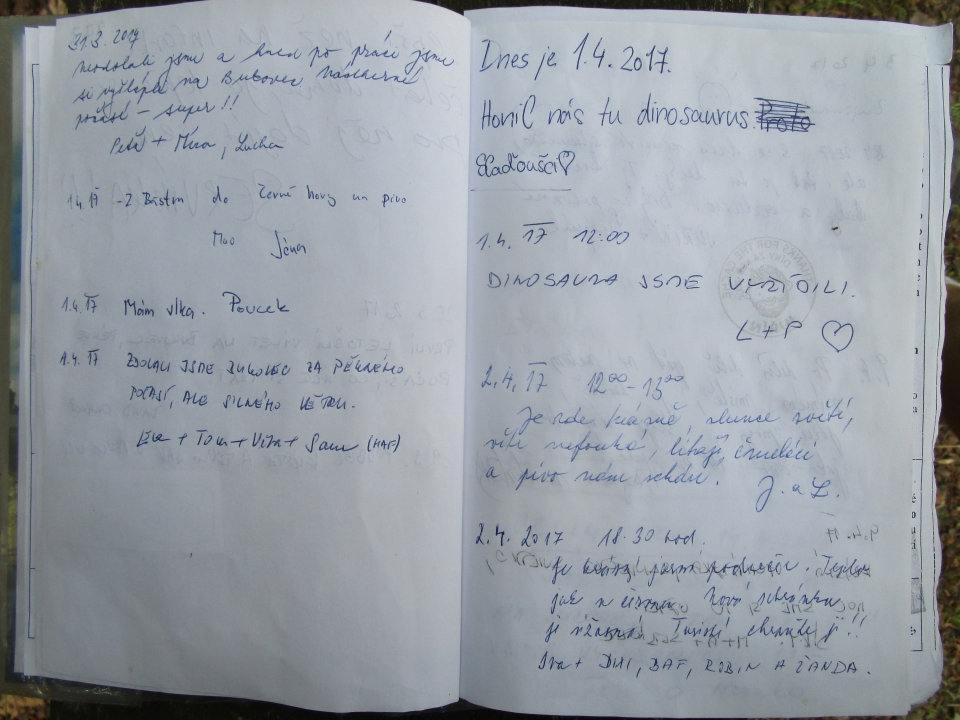 31.3. 2017
Neodolali jsme a hned po práci jsme
si vyšlápli na Bukovec. Nádherné
počasí - super!!
Péťa + Míra, Lucka
1.4. 17 - Z Bástru do Černé hory na pivo
Jéňa
1.4. 17 Mám vlka. Poucek
1.4. 17 ZDOLALI JSME BUKOVEC ZA PĚKNÉHO
POČASÍ, ALE SILNÉHO VĚTRU.
Eva + Tom + Víťa + Sam (HAF)
Dnes je 1.4. 2017.
Honil nás tu dinosaurus.
Slaďoušci♡
1.4. 17 12:00
DINOSAURA JSME VYŘÍDILI.
L+P ♡
2.4. 17 12⁰⁰ - 13⁰⁰
Je zde krásně, slunce svítí,
vítr nefouká, lítají čmeláci
a pivo nám schází. J. a L.
2.4. 2017 18.30 hod.
Je krásné jarní podvečer. Teplo
jak v červnu. Nová schránka
je úžasná. Turisti chraňte ji!!
Iva + DUI, BAF, ROBIN A ŽANDA.